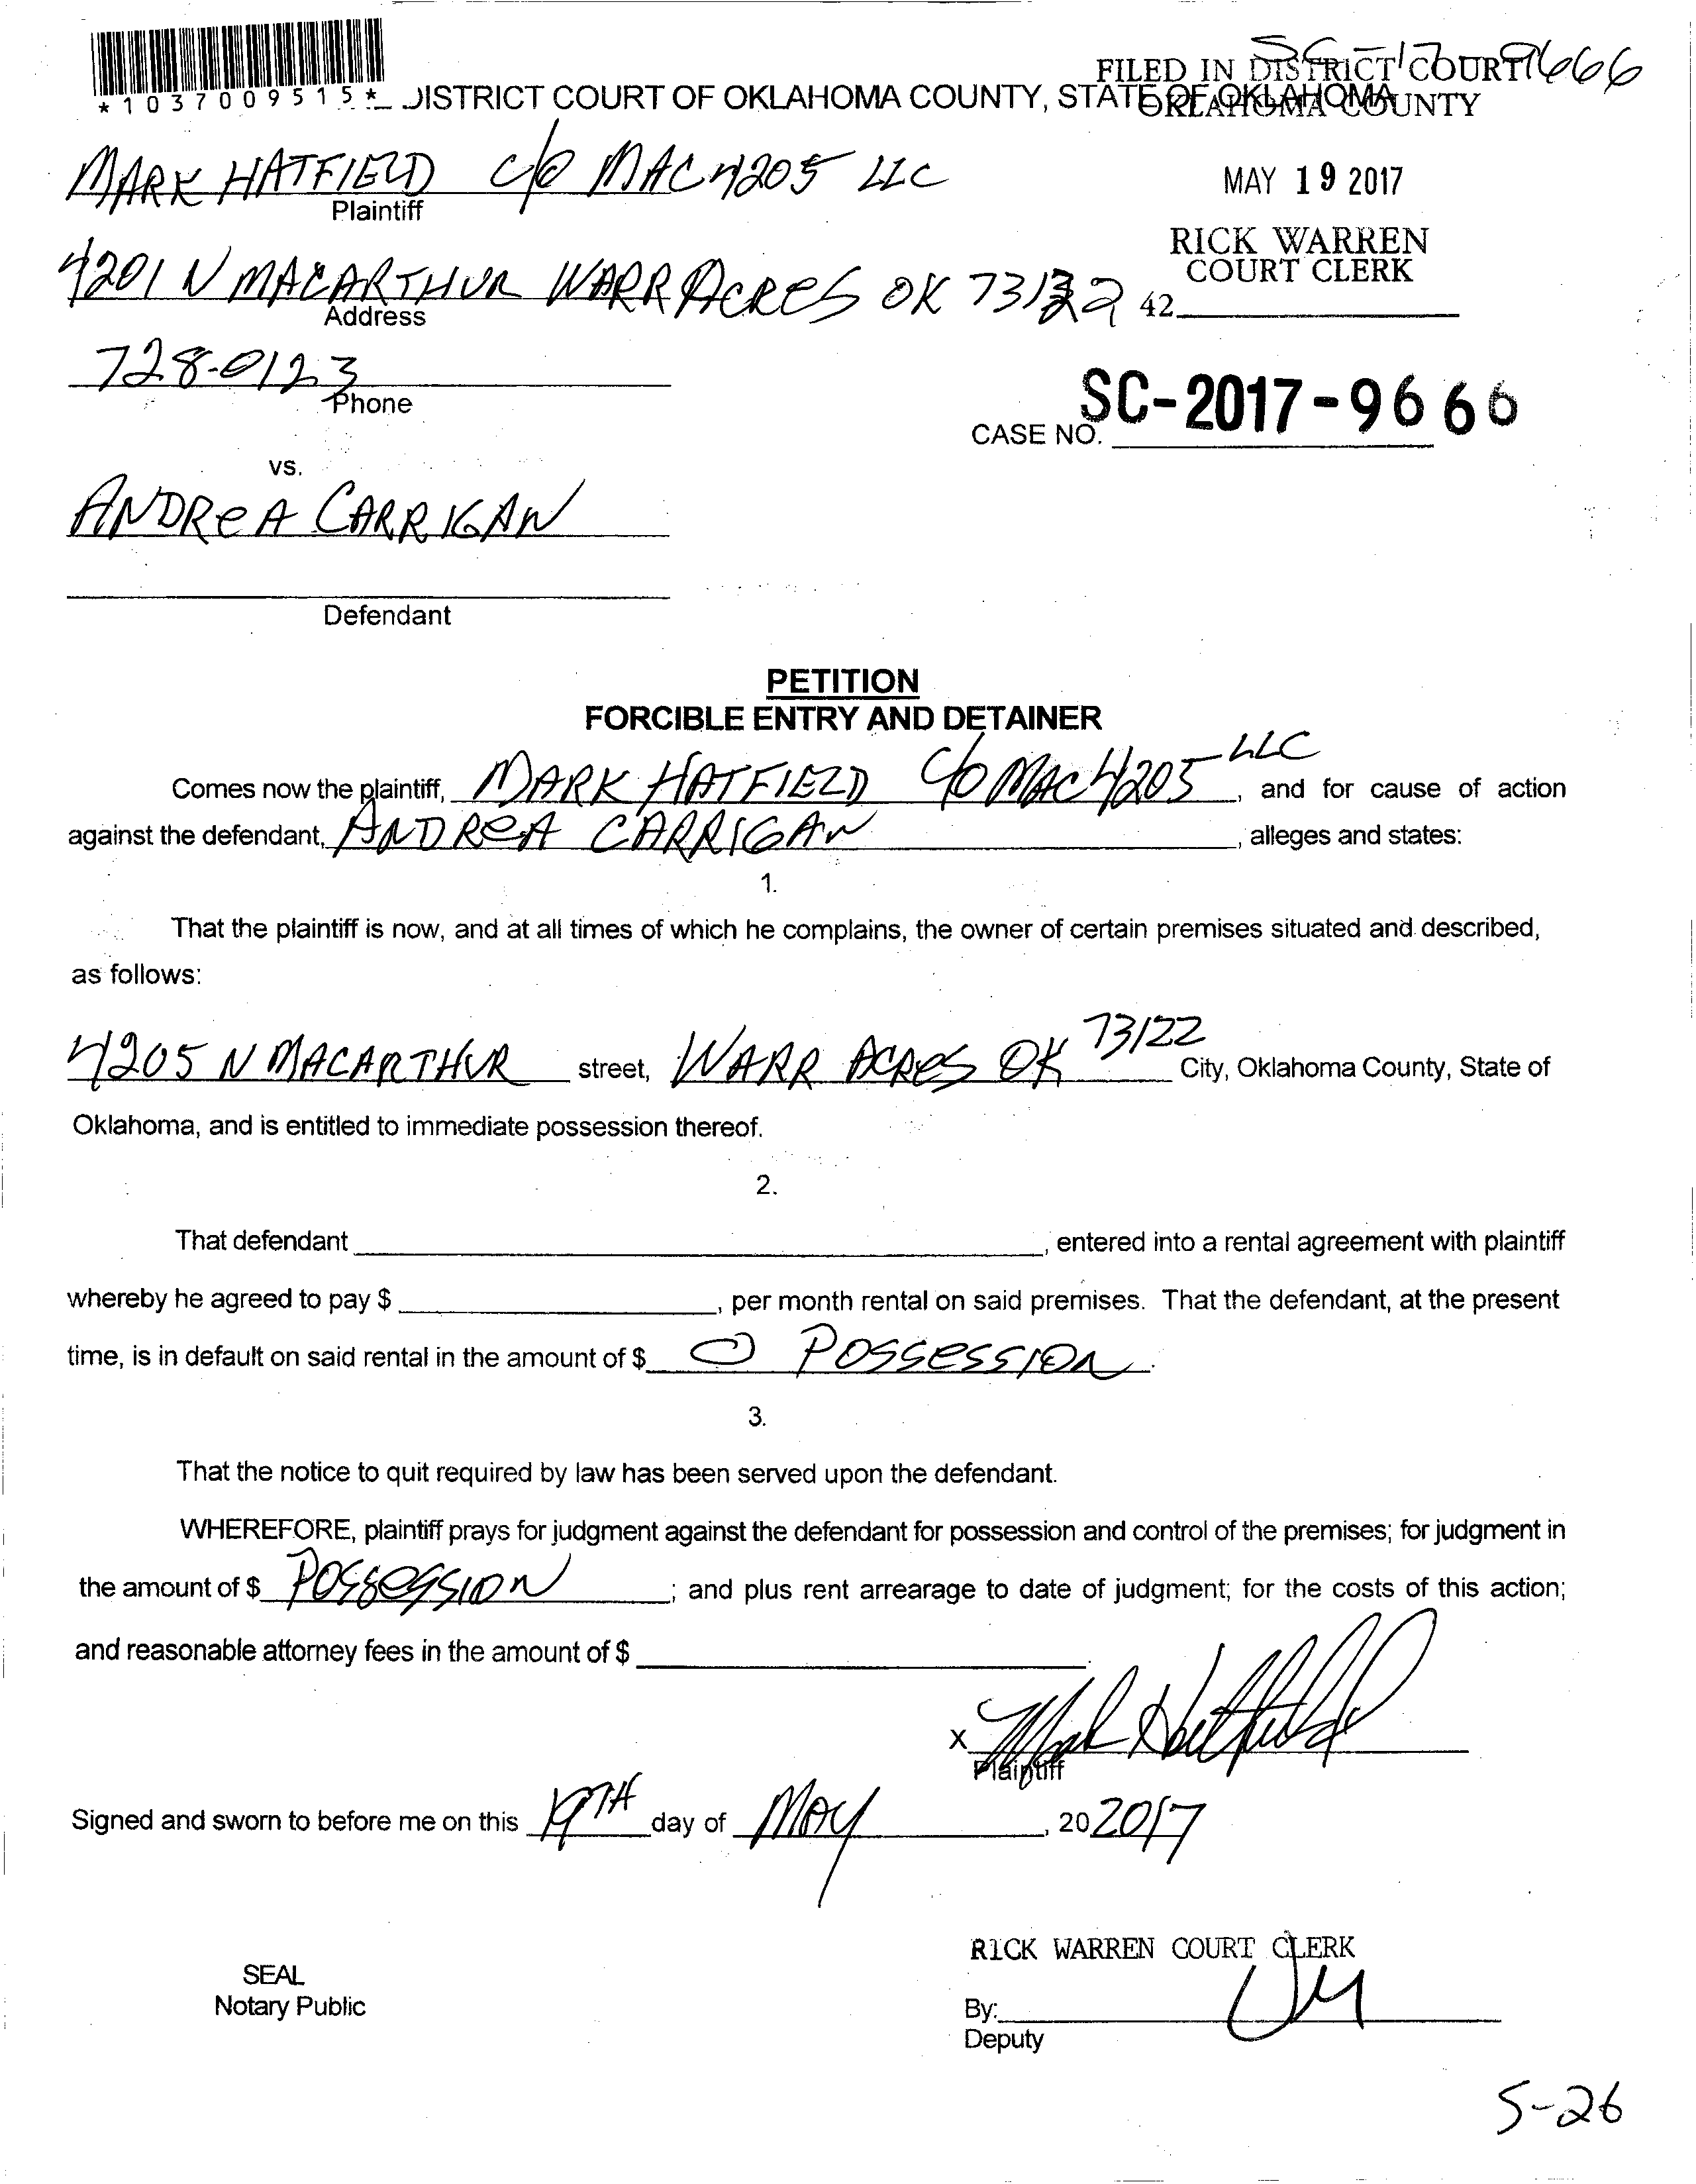 SC-17-9666
FILED IN DISTRICT COURT
*1037009515* DISTRICT COURT OF OKLAHOMA COUNTY, STATE OF OKLAHOMA
OKLAHOMA COUNTY
MARK HATFIELD C/O MAC4205 LLC
Plaintiff
MAY 19 2017
RICK WARREN
COURT CLERK
4201 N MACARTHUR WARR ACRES OK 73122
Address
42
728-0123
Phone
SC-2017-9666
CASE NO.
vs.
ANDREA CARRIGAN
Defendant
PETITION
FORCIBLE ENTRY AND DETAINER
Comes now the plaintiff, MARK HATFIELD C/O MAC4205 LLC, and for cause of action
against the defendant, ANDREA CARRIGAN, alleges and states:
1.
That the plaintiff is now, and at all times of which he complains, the owner of certain premises situated and described,
as follows:
4205 N MACARTHUR street, WARR ACRES OK 73122 City, Oklahoma County, State of
Oklahoma, and is entitled to immediate possession thereof.
2.
That defendant , entered into a rental agreement with plaintiff
whereby he agreed to pay $ , per month rental on said premises. That the defendant, at the present
time, is in default on said rental in the amount of $ 0 POSSESSION.
3.
That the notice to quit required by law has been served upon the defendant.
WHEREFORE, plaintiff prays for judgment against the defendant for possession and control of the premises; for judgment in
the amount of $ POSSESSION; and plus rent arrearage to date of judgment; for the costs of this action;
and reasonable attorney fees in the amount of $ .
X Mark Hatfield
Plaintiff
Signed and sworn to before me on this 19TH day of MAY, 20 2017
RICK WARREN COURT CLERK
SEAL
Notary Public
By:
Deputy
5-26